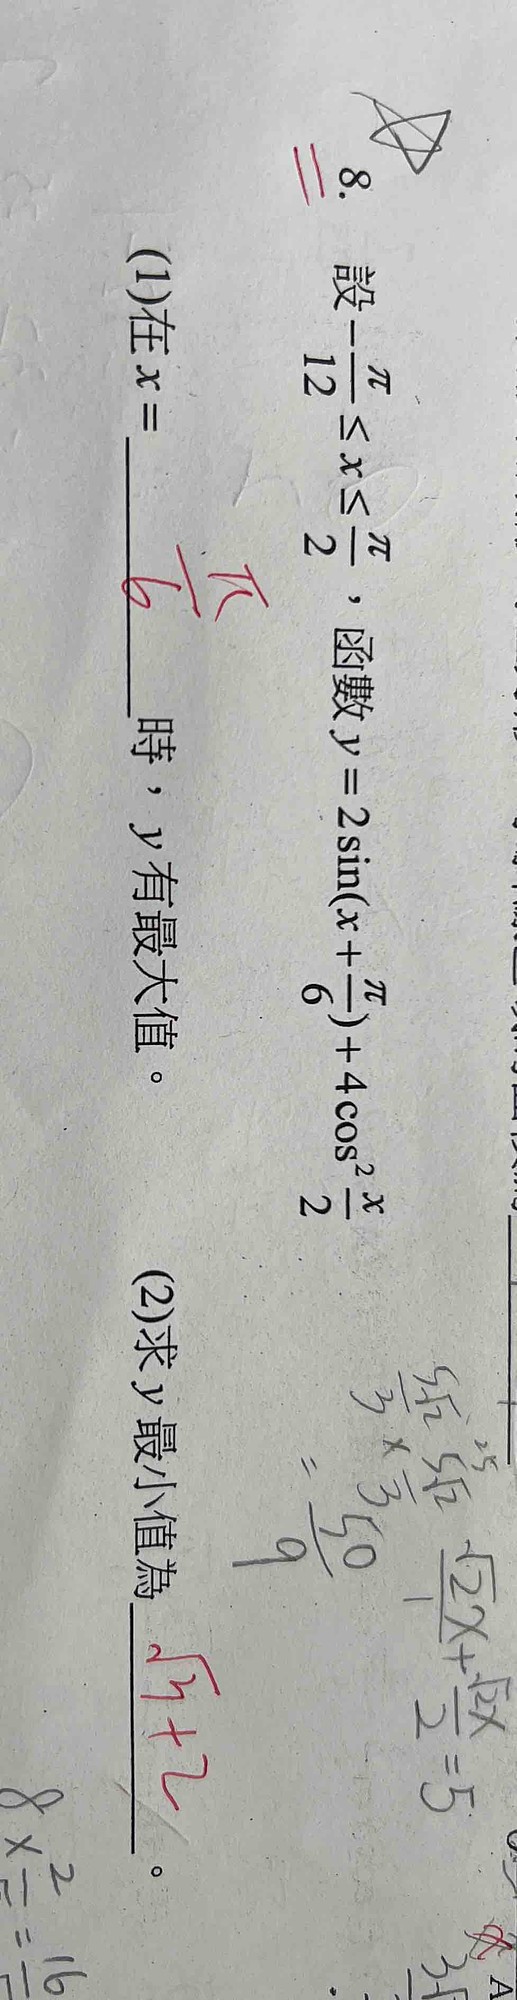 8. 設 -π/12 ≤ x ≤ π/2 ，函數 y = 2sin(x + π/6) + 4cos² x/2
(1)在 x = π/6 時，y 有最大值。 (2)求 y 最小值為
5√2/3 × 5√2/3
25
= 50/9
√2x/1 + √2x/2 = 5
8 × 2
= 16
A